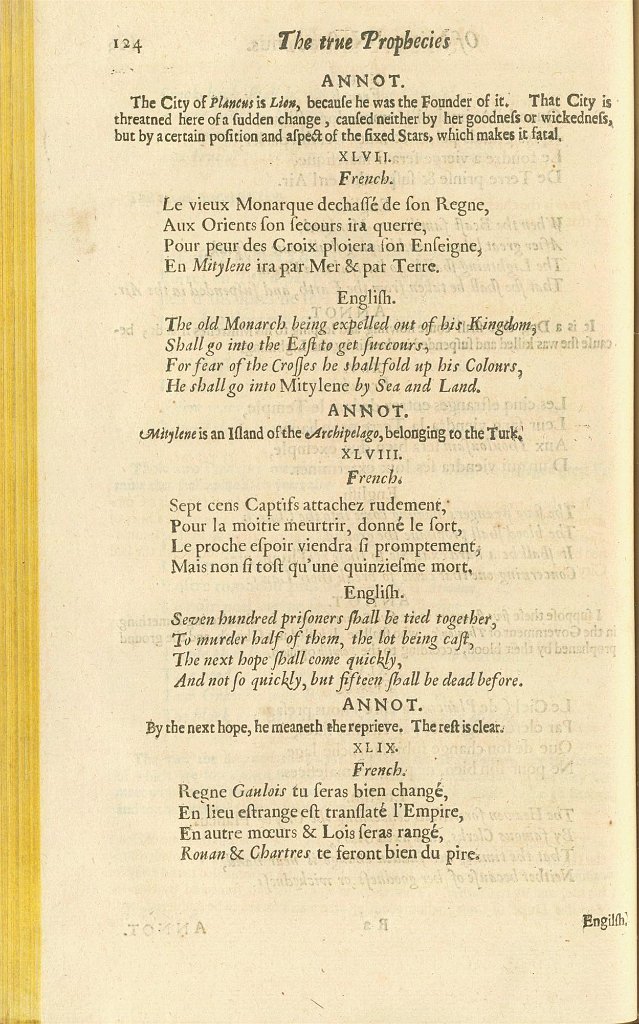 124 The true Prophecies
ANNOT.
The City of Plancus is Lion, becauſe he was the Founder of it. That City is
threatned here of a ſudden change, cauſed neither by her goodneſs or wickedneſs,
but by a certain poſition and aſpect of the fixed Stars, which makes it fatal.
XLVII.
French.
Le vieux Monarque dechaſſé de ſon Regne,
Aux Orients ſon ſecours ira querre,
Pour peur des Croix ploiera ſon Enſeigne,
En Mitylene ira par Mer & par Terre.
Engliſh.
The old Monarch being expelled out of his Kingdom,
Shall go into the Eaſt to get ſuccours,
For fear of the Croſſes he ſhall fold up his Colours,
He ſhall go into Mitylene by Sea and Land.
ANNOT.
Mitylene is an Iſland of the Archipelago, belonging to the Turk.
XLVIII.
French.
Sept cens Captifs attachez rudement,
Pour la moitie meurtrir, donné le ſort,
Le proche eſpoir viendra ſi promptement,
Mais non ſi toſt qu'une quinzieſme mort.
Engliſh.
Seven hundred priſoners ſhall be tied together,
To murder half of them, the lot being caſt,
The next hope ſhall come quickly,
And not ſo quickly, but fifteen ſhall be dead before.
ANNOT.
By the next hope, he meaneth the reprieve. The reſt is clear.
XLIX.
French.
Regne Gaulois tu ſeras bien changé,
En lieu eſtrange eſt tranſlaté l'Empire,
En autre mœurs & Lois ſeras rangé,
Rouan & Chartres te feront bien du pire.
Engilſh.